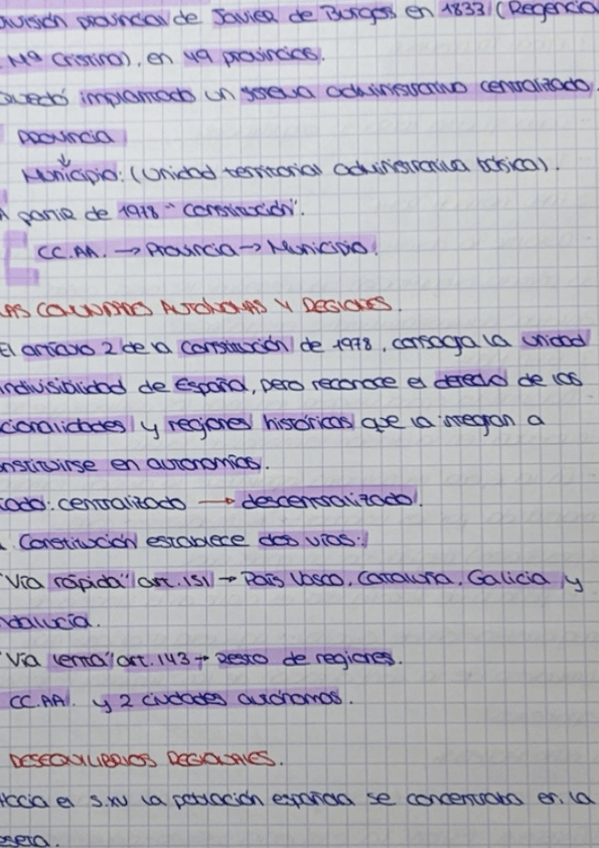 división provincial de Javier de Burgos en 1833 (Regencia
Mª Cristina), en 49 provincias.
Quedó implantado un sistema administrativo centralizado.
Provincia
↓
Municipio: (Unidad territorial administrativa básica).
A partir de 1978 "Constitución".
CC.AA. → Provincia → Municipio.
LAS COMUNIDADES AUTÓNOMAS Y REGIONES.
El artículo 2 de la Constitución de 1978, consagra la unidad
indivisibilidad de España, pero reconoce el derecho de las
cionalidades y regiones históricas que la integran a
nstituirse en autonomías.
tado: centralizado → descentralizado.
. Constitución establece dos vías:
"Vía rápida" art. 151 → País Vasco, Cataluña, Galicia y
ndalucía.
"Vía lenta" art. 143 → Resto de regiones.
CC.AA. y 2 ciudades autónomas.
DESEQUILIBRIOS REGIONALES.
Hacia el S.XV la población española se concentraba en la
seta.